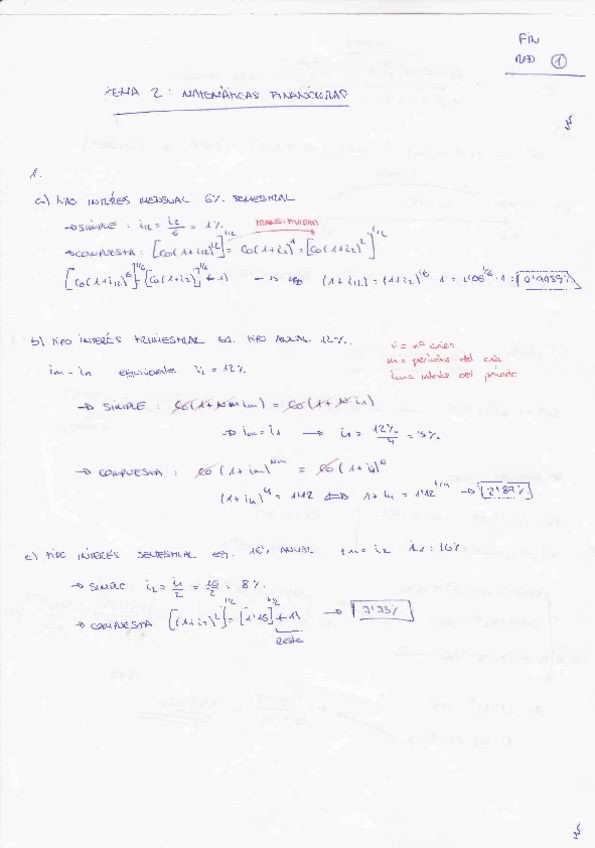 FIN
①
TEMA 2: MATEMÁTICAS FINANCIERAS
1.
a) TIPO INTERÉS MENSUAL 6% SEMESTRAL
→ SIMPLE : i12 = i2/6 = 1%
→ COMPUESTA : [C0(1+i12)^12]^1/12 = C0(1+i1)^1 = [C0(1+i2)^2]^1/12
[C0(1+i12)^6]^1/6 = [C0(1+i2)]^1/6
(1+i12) = (1+i2)^1/6 - 1 = 1'06^1/6 - 1 = 0'9759%
b) TIPO INTERÉS TRIMESTRAL EQ. TIPO ANUAL 12%.
n = nº años
m = periodos del año
im = interés del periodo
im - i4 equivalente i1 = 12%
→ SIMPLE : C0(1+N·m·im) = C0(1+N·i1)
→ im = i1 → i4 = 12%/4 = 3%
→ COMPUESTA : C0(1+im)^Nm = C0(1+i1)^N
(1+i4)^4 = 1'12 ⟺ 1+i4 = 1'12^1/4 → 2'87%
c) TIPO INTERÉS SEMESTRAL EQ. 16% ANUAL im = i2 i1 = 16%
→ SIMPLE i2 = i1/2 = 16/2 = 8%
→ COMPUESTA [(1+i2)^2]^1/2 = [1'16]^1/2
Resta
→ 7'7%